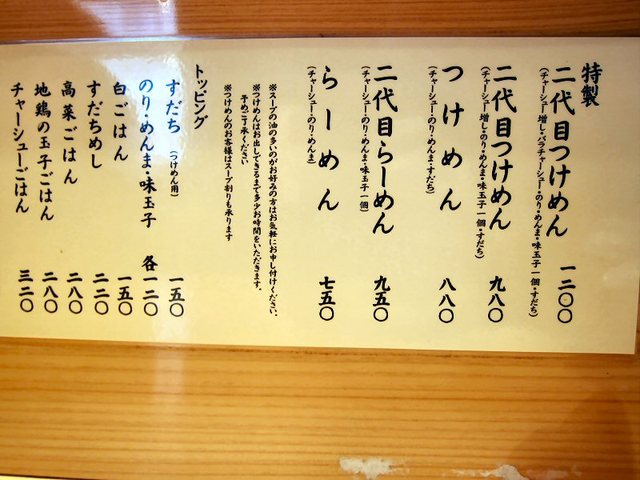 特製
二代目つけめん 一二〇〇
(チャーシュー増し・バラチャーシュー・のり・めんま・味玉子一個・すだち)
二代目つけめん 九八〇
(チャーシュー増し・のり・めんま・味玉子一個・すだち)
つけめん 八八〇
(チャーシュー・のり・めんま・すだち)
二代目らーめん 九五〇
(チャーシュー・のり・めんま・味玉子一個)
らーめん 七五〇
(チャーシュー・のり・めんま)
※スープの油の多いのがお好みの方はお気軽にお申し付けください。
※つけめんはお出しできるまで多少お時間をいただきます。
予めご了承ください
※つけめんのお客様はスープ割りも承ります
トッピング
すだち (つけめん用) 一五〇
のり・めんま・味玉子 各一二〇
白ごはん 一五〇
すだちめし 二二〇
高菜ごはん 二八〇
地鶏の玉子ごはん 二八〇
チャーシューごはん 三二〇